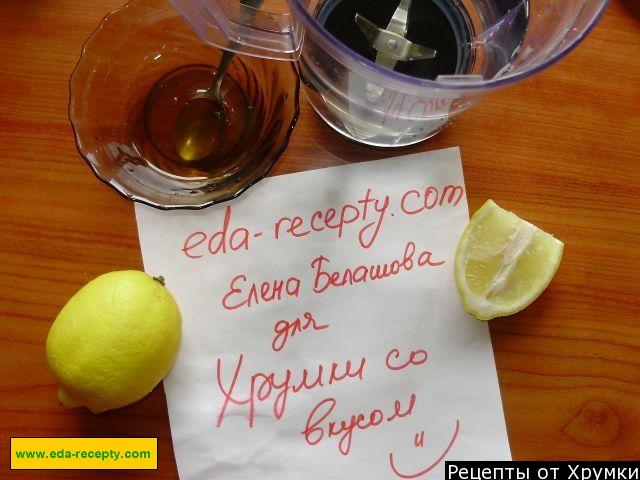 eda-recepty.com
Елена Белашова
для
Хрумки со
вкусом
www.eda-recepty.com
Рецепты от Хрумки